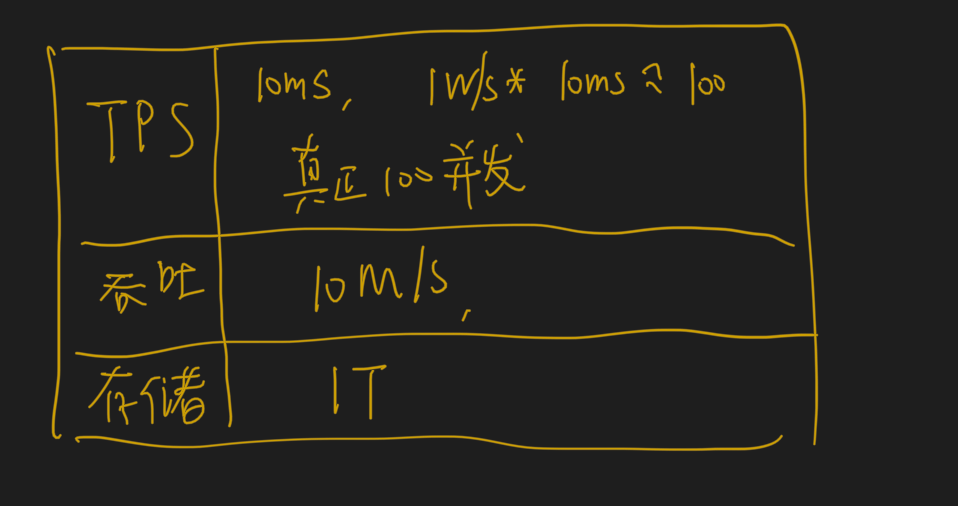 TPS
10ms, 1W/s * 10ms ≈ 100
真正100并发
吞吐
10M/s,
存储
1T